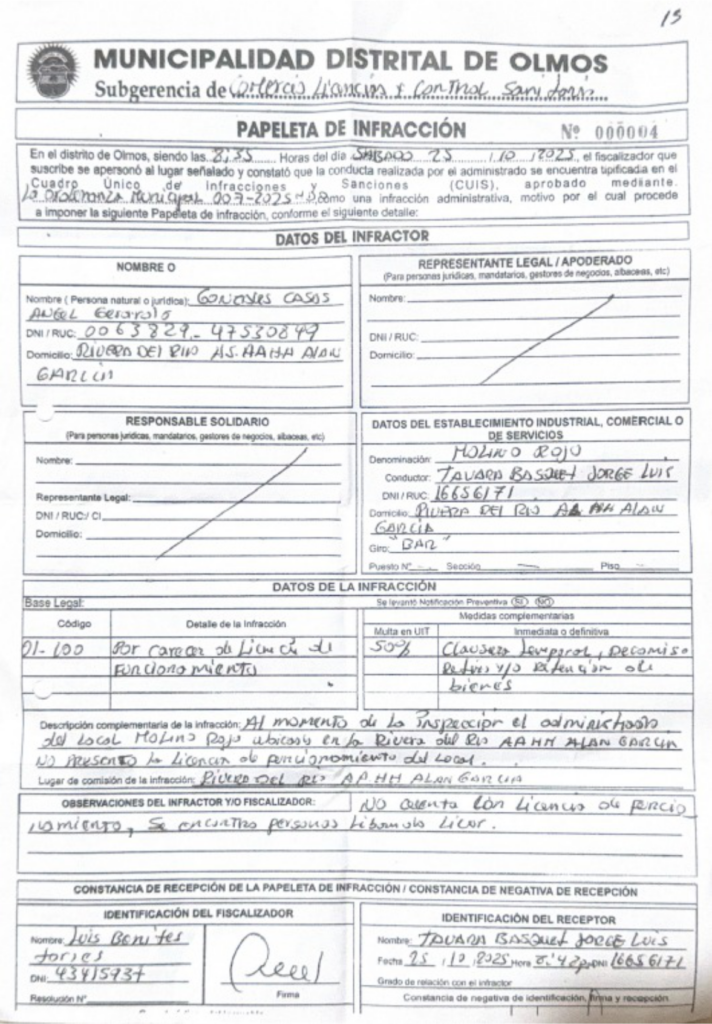 15
MUNICIPALIDAD DISTRITAL DE OLMOS
Subgerencia de Comercio Licencias y Control Sanitario
PAPELETA DE INFRACCIÓN Nº 000004
En el distrito de Olmos, siendo las 8:35 Horas del día SABADO 25 /10 /2025, el fiscalizador que
suscribe se apersonó al lugar señalado y constató que la conducta realizada por el administrado se encuentra tipificada en el
Cuadro Único de Infracciones y Sanciones (CUIS), aprobado mediante.
La Ordenanza Municipal 007-2025 como una infracción administrativa, motivo por el cual procede
a imponer la siguiente Papeleta de infracción, conforme el siguiente detalle:
DATOS DEL INFRACTOR
NOMBRE O
Nombre ( Persona natural o jurídica): GONZALES CASAS
ANGEL Gerardo
DNI / RUC: 0063829 - 47530849
Domicilio: RIVERA DEL RIO AS. AAHH ALAN
GARCIA
REPRESENTANTE LEGAL / APODERADO
(Para personas jurídicas, mandatarios, gestores de negocios, albaceas, etc)
Nombre:
DNI / RUC:
Domicilio:
RESPONSABLE SOLIDARIO
(Para personas jurídicas, mandatarios, gestores de negocios, albaceas, etc)
Nombre:
Representante Legal:
DNI / RUC:/ CI
Domicilio:
DATOS DEL ESTABLECIMIENTO INDUSTRIAL, COMERCIAL O
DE SERVICIOS
Denominación: MOLINO ROJO
Conductor: TAVARA BASQUEZ JORGE LUIS
DNI / RUC: 16656171
Domicilio: RIVERA DEL RIO AA HH ALAN
GARCIA
Giro: "BAR"
Puesto Nº Sección Piso
DATOS DE LA INFRACCIÓN
Base Legal: Se levantó Notificación Preventiva (SI) (NO)
Código Detalle de la Infracción Medidas complementarias
Multa en UIT Inmediata o definitiva
01-100 Por carecer de Licencia de 50% Clausura temporal, Decomiso
Funcionamiento Retiro y/o Retencion de
bienes
Descripción complementaria de la infracción: Al momento de la Inspección el administrado
del Local Molino Rojo ubicado en la Rivera del Rio AA HH ALAN GARCIA
NO PRESENTO la Licencia de funcionamiento del Local.
Lugar de comisión de la infracción: RIVERA DEL RIO AA.HH ALAN GARCIA
OBSERVACIONES DEL INFRACTOR Y/O FISCALIZADOR: NO cuenta con Licencia de funcio
namiento, Se encontro personas Libando Licor.
CONSTANCIA DE RECEPCIÓN DE LA PAPELETA DE INFRACCIÓN / CONSTANCIA DE NEGATIVA DE RECEPCIÓN
IDENTIFICACIÓN DEL FISCALIZADOR
Nombre: Luis Benites
Torres
DNI: 43415737
Resolución Nº
Firma
IDENTIFICACIÓN DEL RECEPTOR
Nombre: TAVARA BASQUEZ JORGE LUIS
Fecha 25 /10 /2025 Hora 8:42 p DNI 16656171
Grado de relación con el infractor
Constancia de negativa de identificación, firma y recepción.